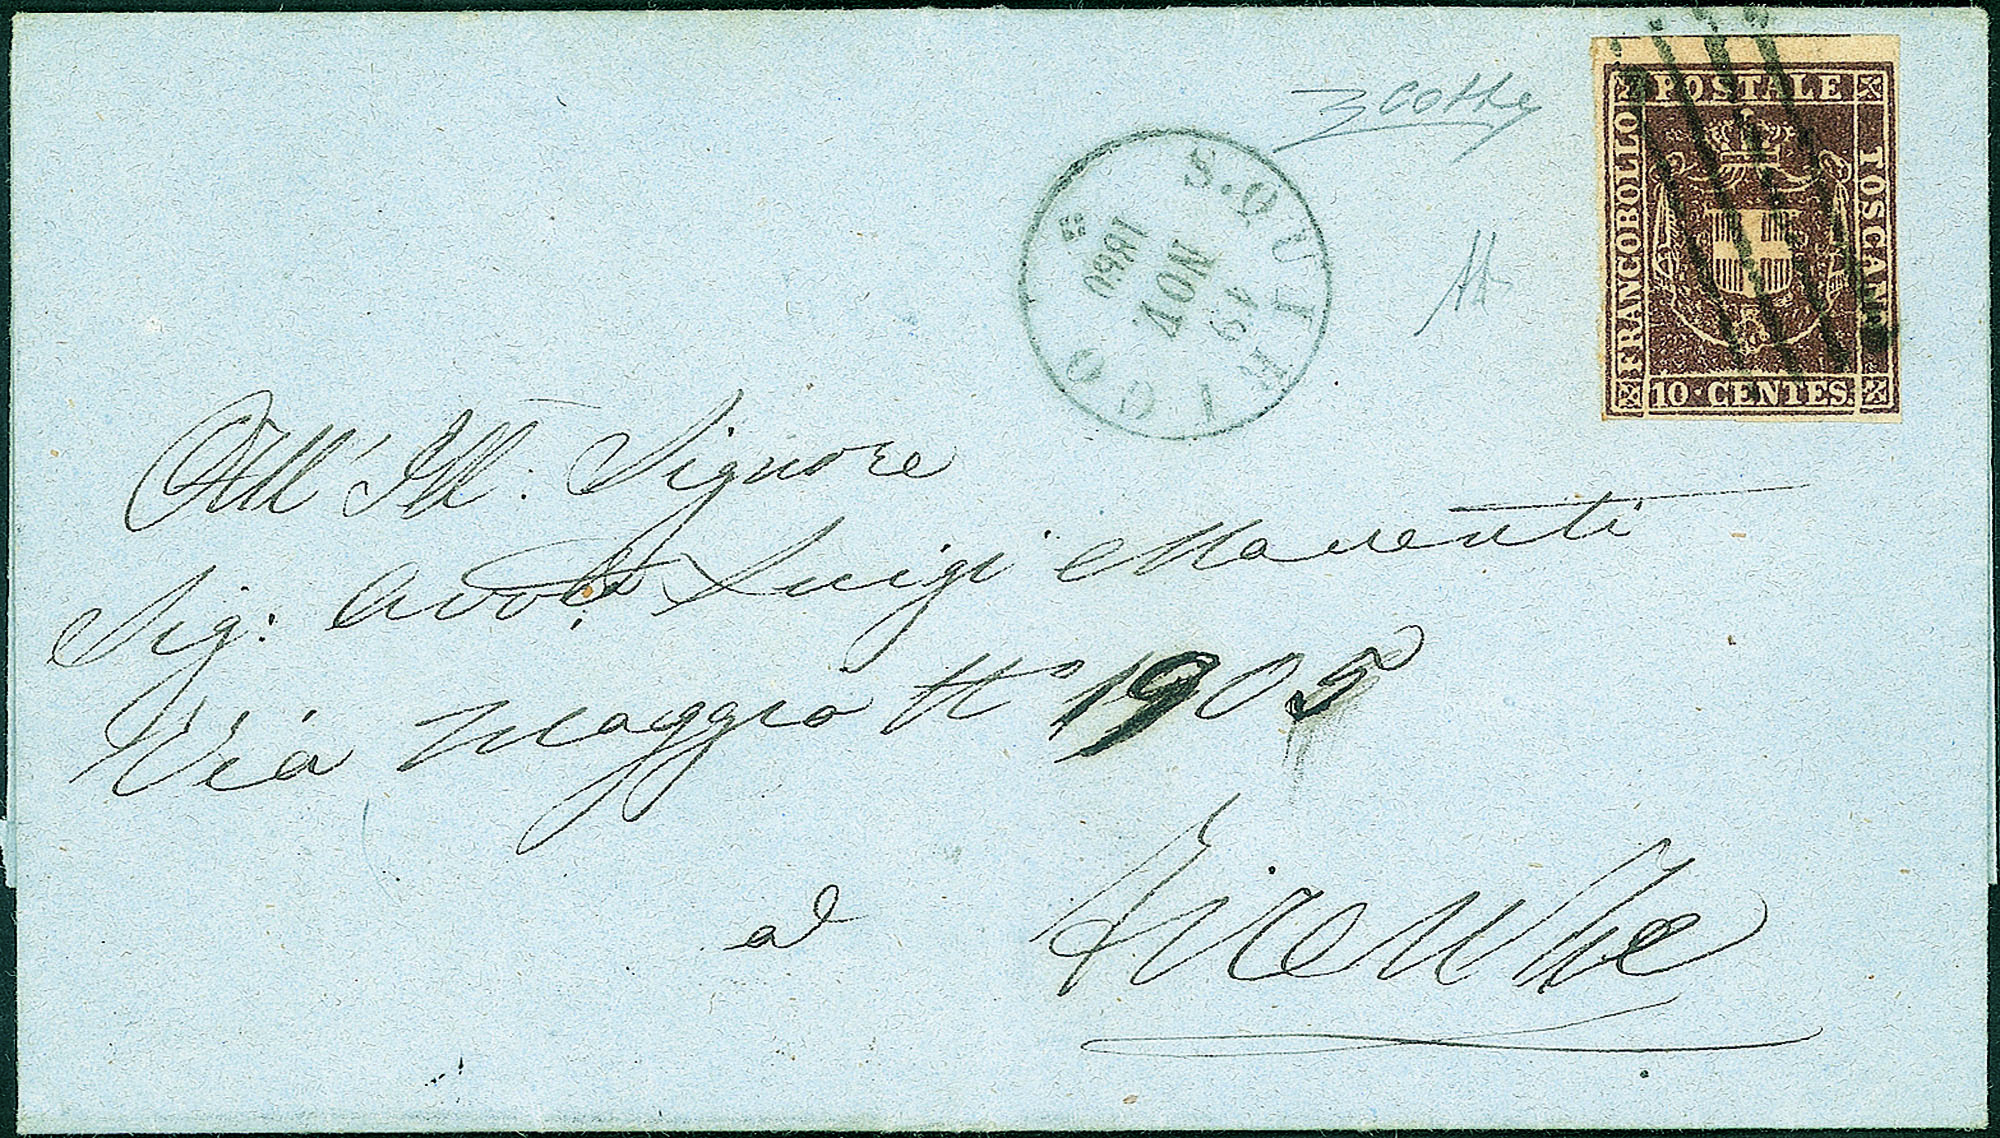 FRANCOBOLLO POSTALE TOSCANO
10·CENTES.
S. QUIRICO
19
NOV
1860
All' Ill: Signore
Sig: Avv. Luigi
Via Maggio N° 1905
a
Firenze